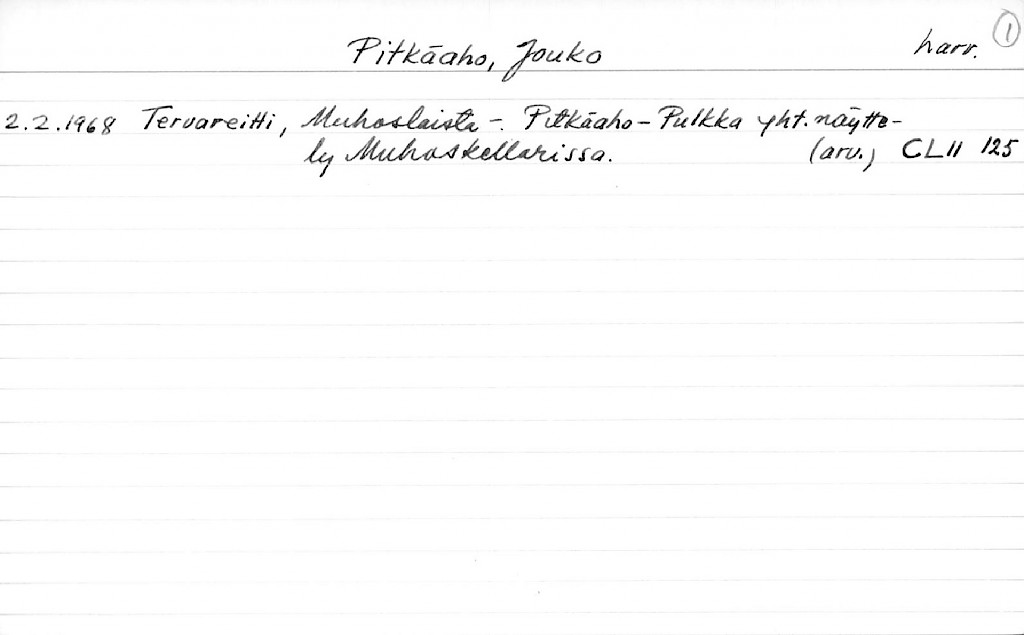 Pitkäaho, Jouko harr. 1
2.2.1968 Tervareitti, Muhoslaista -. Pitkäaho - Pulkka yht. näytte-
ly Muhoskellarissa. (arv.) CLII 125